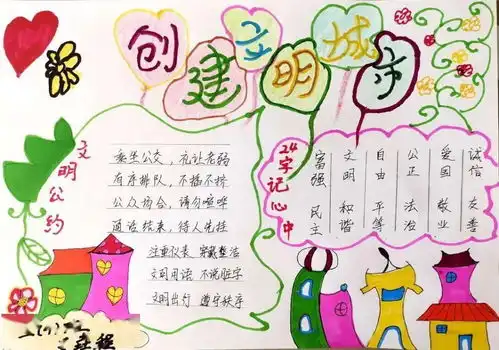 创建文明城市
文明公约
乘坐公交,礼让老弱
有序排队,不插不挤
公众场合,请勿喧哗
通话结束,待人先挂
注重仪表 穿戴整洁
文明用语 不说脏字
文明出行 遵守秩序
24字记心中
富强 民主
文明 和谐
自由 平等
公正 法治
爱国 敬业
诚信 友善